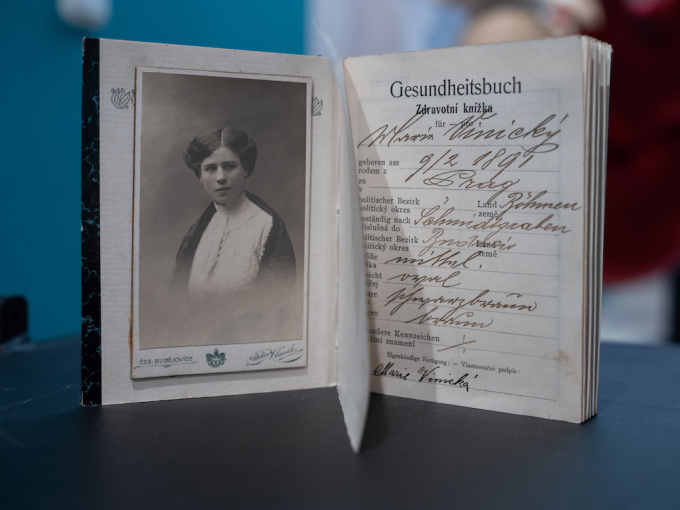 ČES. BUDĚJOVICE
Gesundheitsbuch
Zdravotní knížka
für pro
Marie Vinický
geboren am
rodem z
9/2 1891
Prag
politischer Bezirk
politický okres
Land
země
Böhmen
zuständig nach
příslušná do
Schmidgraben
politischer Bezirk
politický okres
Land
země
mittel.
oval
schwarzbraun
braun
sondere Kennzeichen
štní znamení
Eigenhändige Fertigung: — Vlastnoruční podpis:
Marie Vinická